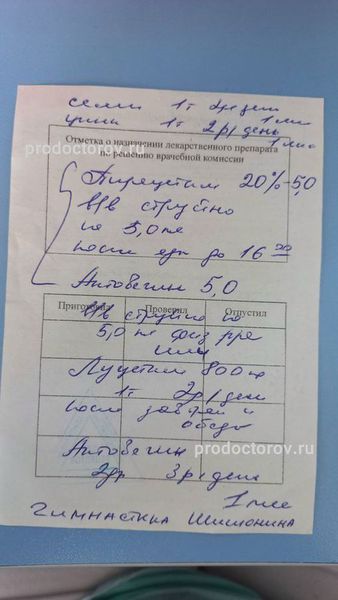 селен 1т 2р день
1 мес
цинк 1т 2р/день
1 мес
Отметка о назначении лекарственного препарата
по решению врачебной комиссии
prodoctorov.ru
Пирацетам 20%-5,0
в/в струйно
по 5,0 мл
после еды до 16 00
Актовегин 5,0
Приготовил Проверил Отпустил
в/в струйно по
5,0 на физ рре
Луцетам 800 мг
1т 2р/день
после завтрака и
обеда
prodoctorov.ru
Актовегин
2др 3р день
1 мес
гимнастика Шишонина